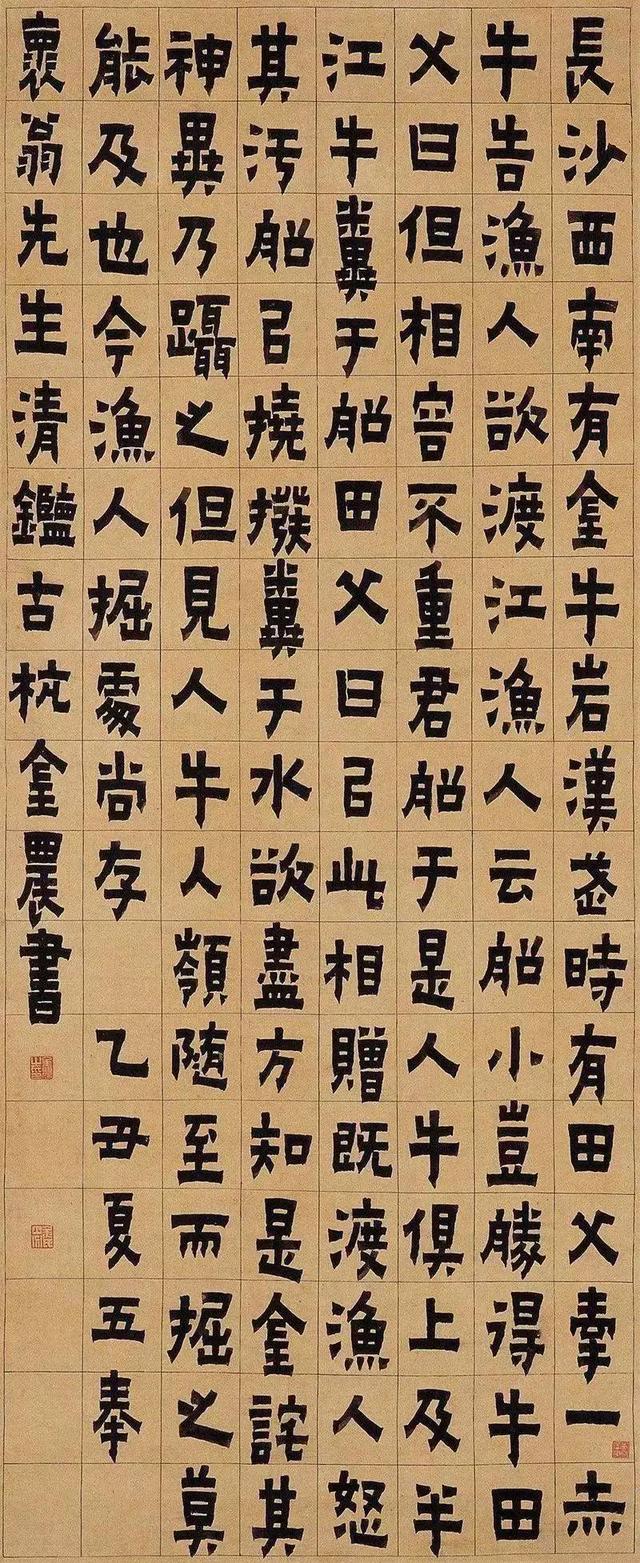 長沙西南有金牛岩漢武時有田父牽一赤
牛告漁人欲渡江漁人云船小豈勝得牛田
父曰但相容不重君船于是人牛俱上及半
江牛糞于船田父曰㠯此相贈既渡漁人怒
其汚船㠯撓撥糞于水欲盡方知是金詫其
神異乃躡之但見人牛入嶺隨至而掘之莫
能及也今漁人掘處尚存 乙丑夏五奉
翁先生清鑑古杭金農書